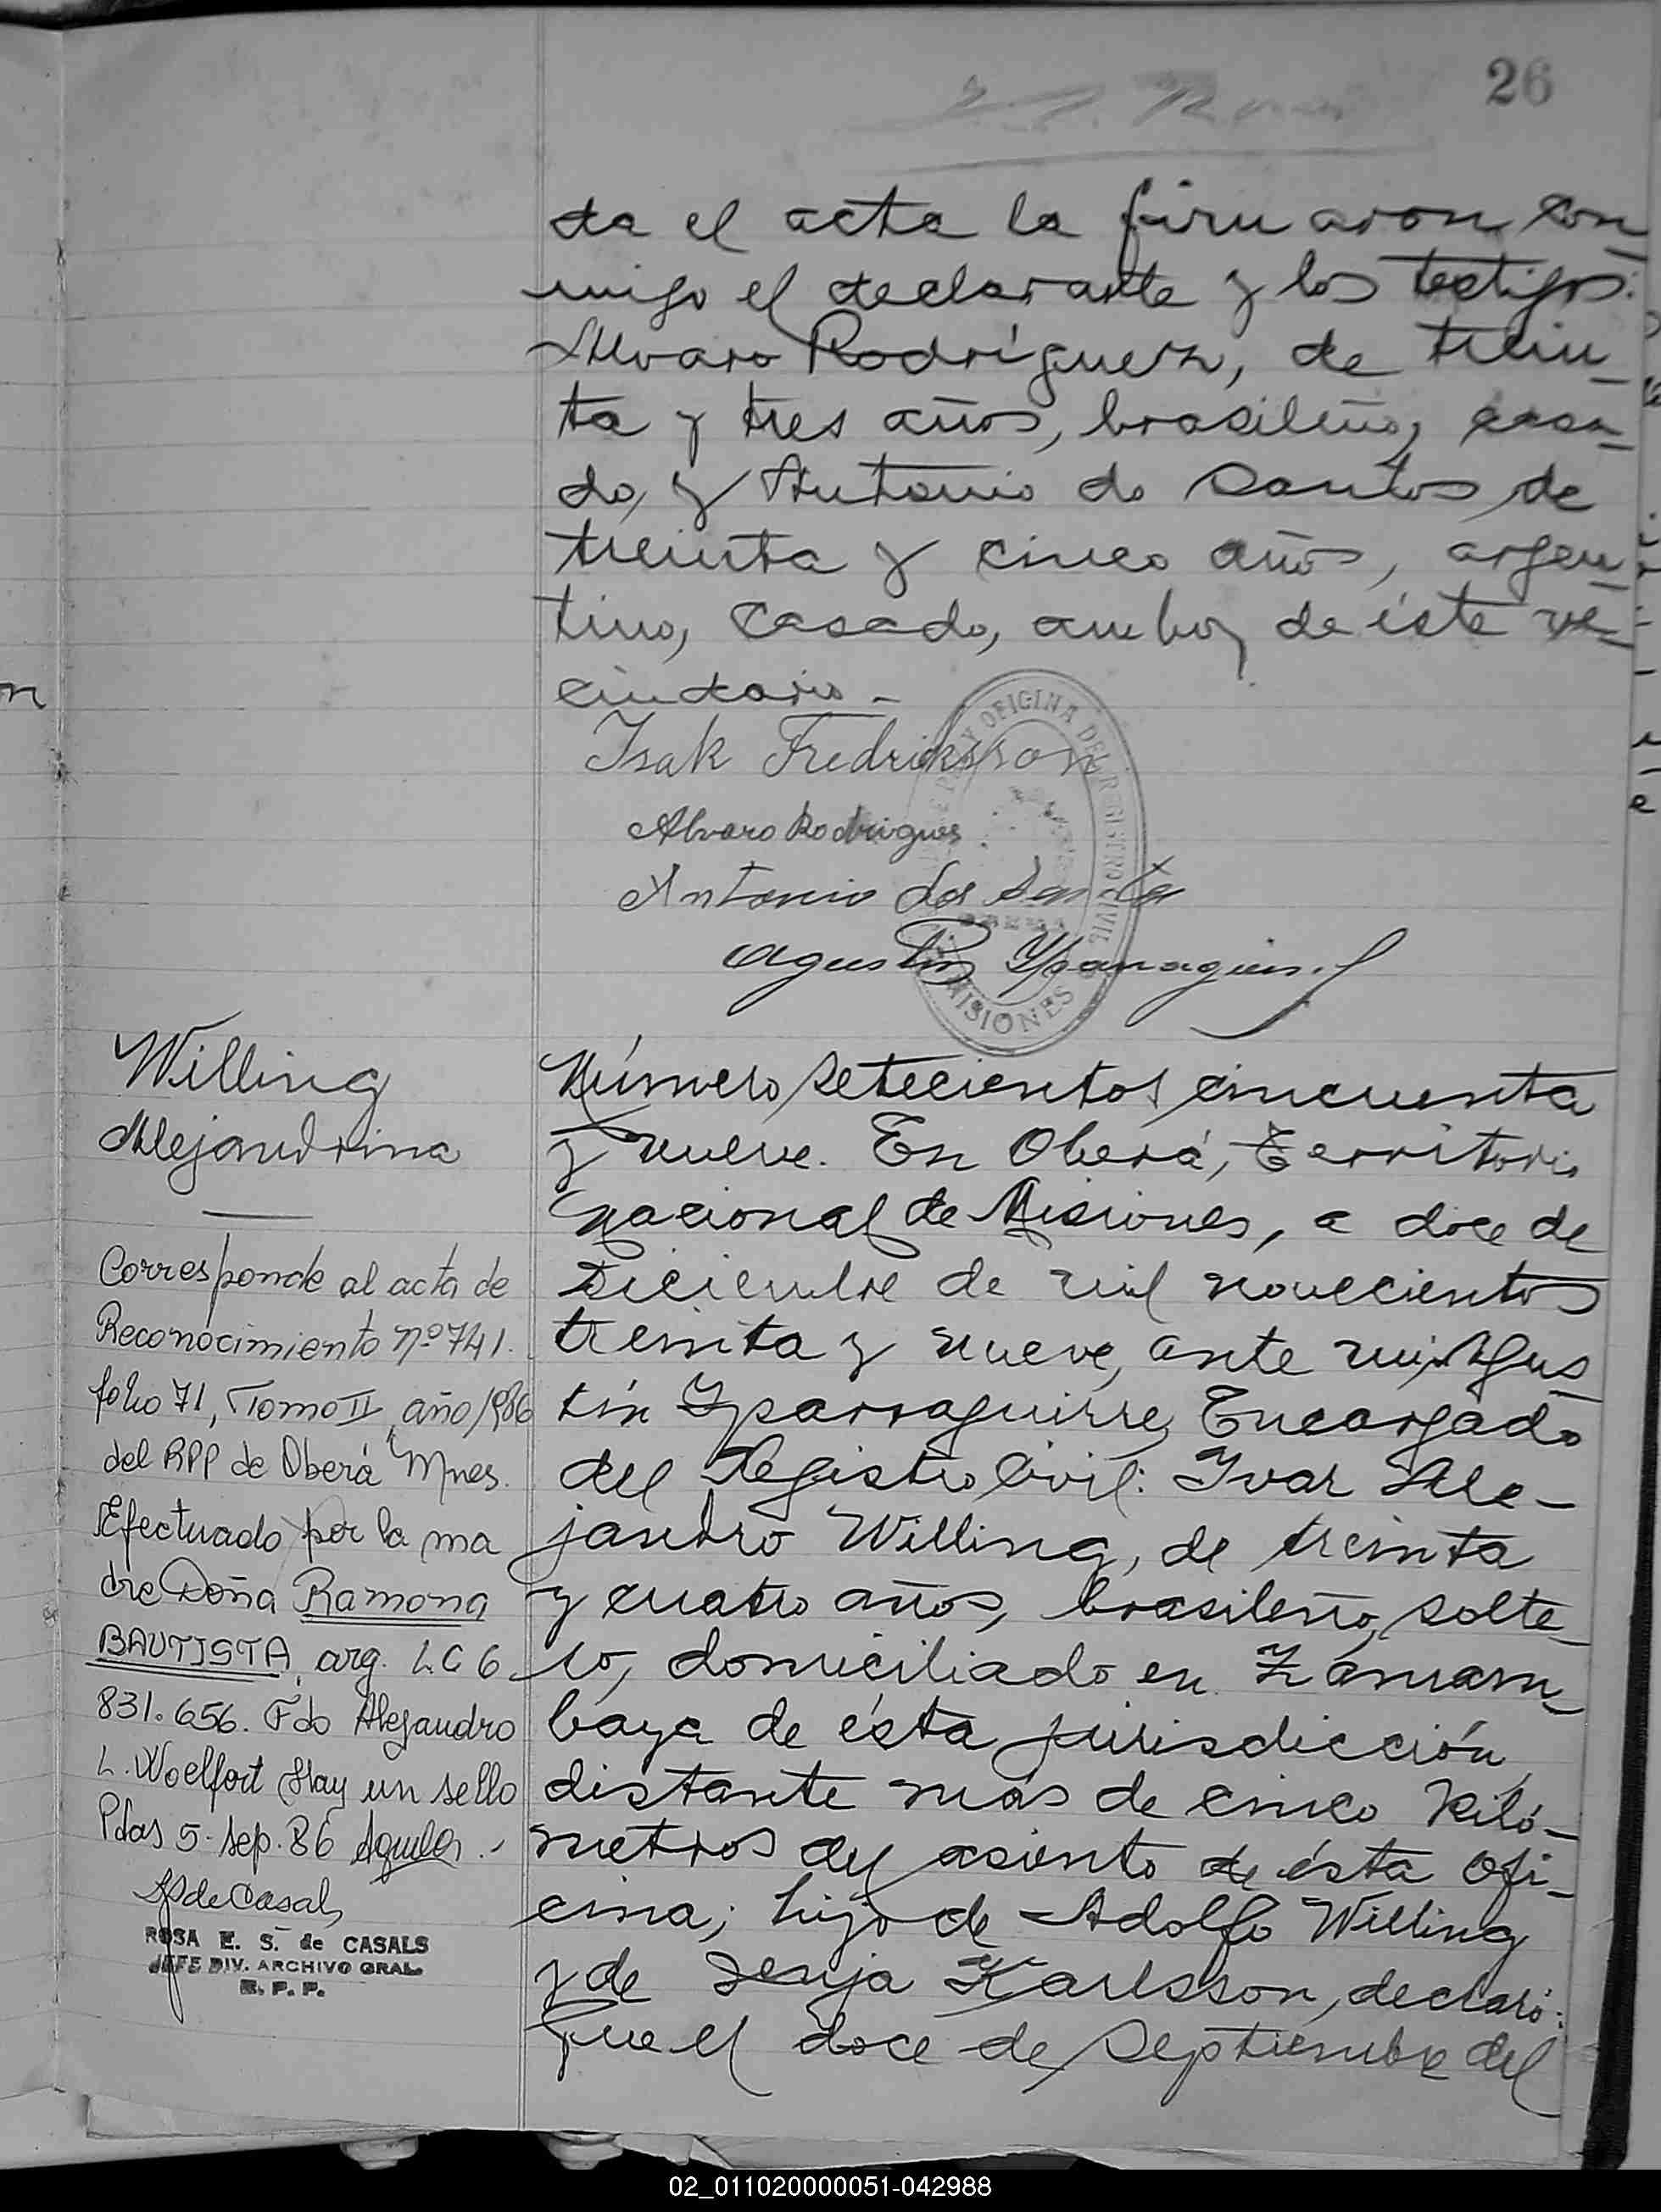 26
da el acta la firmaron con
migo el declarante y los testigos:
Alvaro Rodríguez, de trein_
ta y tres años, brasileño, casa_
do, y Antonio do Santos de
treinta y cinco años, argen_
tino, casado, ambos de éste ve_
cindario_
Isak Fredriksson
Alvaro Rodrigues
Antonio dos Santos
Agustín Yparraguirre
OFICINA DEL REGISTRO CIVIL
MISIONES
Willing
Alejandrina
Corresponde al acta de
Reconocimiento nº 741.
folio 71, Tomo II, año 1986
del RPP de Oberá Mnes.
Efectuado por la ma
dre Doña Ramona
BAUTISTA, arg. L.C 6
831.656. Fdo Alejandro
L. Woelfort Hay un sello
Pdas 5-Sep.86
de Casals
ROSA E. S. de CASALS
JEFE DIV. ARCHIVO GRAL.
R. P. P.
Número Setecientos cincuenta
y nueve. En Oberá, Territorio
Nacional de Misiones, a doce de
Diciembre de mil novecientos
treinta y nueve, ante mi, Agus_
tín Yparraguirre, Encargado
del Registro Civil: Yvar Ale-
jandro Willing, de treinta
y cuatro años, brasileño, solte_
ro, domiciliado en
baya de ésta jurisdicción,
distante más de cinco Kiló-
metros del asiento de ésta Ofi-
cina; hijo de Adolfo Willing
y de Senja Karlsson, declaró:
Que el doce de Septiembre del
02_011020000051-042988